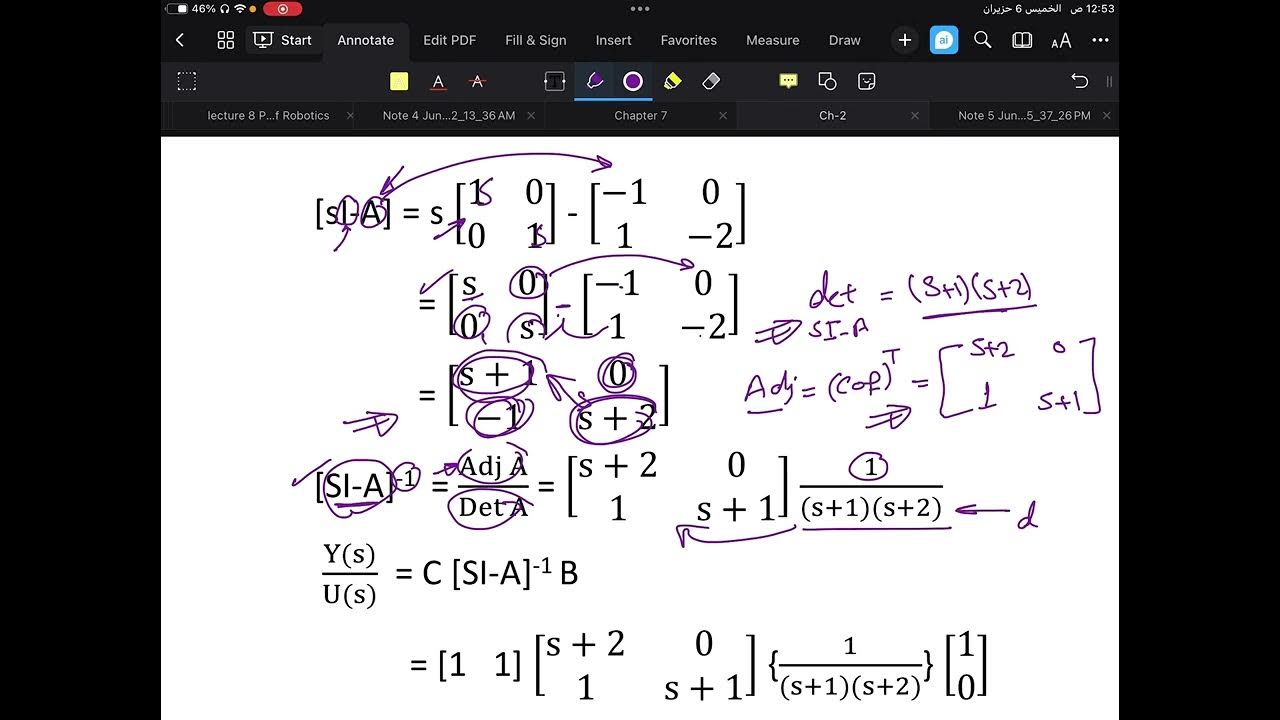 46% 12:53 ص الخميس 6 حزيران
Start Annotate Edit PDF Fill & Sign Insert Favorites Measure Draw ai AA
lecture 8 P...f Robotics Note 4 Jun...2_13_36 AM Chapter 7 Ch-2 Note 5 Jun...5_37_26 PM
[sI-A] = s [1 0; 0 1] - [−1 0; 1 −2]
s
s
= [s 0; 0 s] - [−1 0; 1 −2]
det = (s+1)(s+2)
SI-A
= [s + 1 0; −1 s + 2]
Adj = (Cof)ᵀ = [s+2 0; 1 s+1]
[SI-A]⁻¹ = Adj A / Det A = [s + 2 0; 1 s + 1] 1/((s+1)(s+2))
d
Y(s)/U(s) = C [SI-A]⁻¹ B
= [1 1] [s + 2 0; 1 s + 1] {1/((s+1)(s+2))} [1; 0]